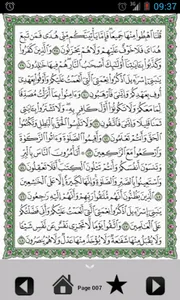 09:37
قُلْنَا ٱهْبِطُوا۟ مِنْهَا جَمِيعًا فَإِمَّا يَأْتِيَنَّكُم مِّنِّى هُدًى فَمَن تَبِعَ
هُدَاىَ فَلَا خَوْفٌ عَلَيْهِمْ وَلَا هُمْ يَحْزَنُونَ ٣٨ وَٱلَّذِينَ كَفَرُوا۟
وَكَذَّبُوا۟ بِـَٔايَـٰتِنَآ أُو۟لَـٰٓئِكَ أَصْحَـٰبُ ٱلنَّارِ هُمْ فِيهَا خَـٰلِدُونَ ٣٩
يَـٰبَنِىٓ إِسْرَٰٓءِيلَ ٱذْكُرُوا۟ نِعْمَتِىَ ٱلَّتِىٓ أَنْعَمْتُ عَلَيْكُمْ وَأَوْفُوا۟ بِعَهْدِىٓ
أُوفِ بِعَهْدِكُمْ وَإِيَّـٰىَ فَٱرْهَبُونِ ٤٠ وَءَامِنُوا۟ بِمَآ أَنزَلْتُ مُصَدِّقًا
لِّمَا مَعَكُمْ وَلَا تَكُونُوٓا۟ أَوَّلَ كَافِرٍۭ بِهِۦ وَلَا تَشْتَرُوا۟ بِـَٔايَـٰتِى
ثَمَنًا قَلِيلًا وَإِيَّـٰىَ فَٱتَّقُونِ ٤١ وَلَا تَلْبِسُوا۟ ٱلْحَقَّ بِٱلْبَـٰطِلِ وَتَكْتُمُوا۟
ٱلْحَقَّ وَأَنتُمْ تَعْلَمُونَ ٤٢ وَأَقِيمُوا۟ ٱلصَّلَوٰةَ وَءَاتُوا۟ ٱلزَّكَوٰةَ
وَٱرْكَعُوا۟ مَعَ ٱلرَّٰكِعِينَ ٤٣ أَتَأْمُرُونَ ٱلنَّاسَ بِٱلْبِرِّ
وَتَنسَوْنَ أَنفُسَكُمْ وَأَنتُمْ تَتْلُونَ ٱلْكِتَـٰبَ أَفَلَا تَعْقِلُونَ ٤٤
وَٱسْتَعِينُوا۟ بِٱلصَّبْرِ وَٱلصَّلَوٰةِ وَإِنَّهَا لَكَبِيرَةٌ إِلَّا عَلَى ٱلْخَـٰشِعِينَ ٤٥
ٱلَّذِينَ يَظُنُّونَ أَنَّهُم مُّلَـٰقُوا۟ رَبِّهِمْ وَأَنَّهُمْ إِلَيْهِ رَٰجِعُونَ ٤٦
يَـٰبَنِىٓ إِسْرَٰٓءِيلَ ٱذْكُرُوا۟ نِعْمَتِىَ ٱلَّتِىٓ أَنْعَمْتُ عَلَيْكُمْ وَأَنِّى فَضَّلْتُكُمْ
عَلَى ٱلْعَـٰلَمِينَ ٤٧ وَٱتَّقُوا۟ يَوْمًا لَّا تَجْزِى نَفْسٌ عَن نَّفْسٍ شَيْـًٔا
وَلَا يُقْبَلُ مِنْهَا شَفَـٰعَةٌ وَلَا يُؤْخَذُ مِنْهَا عَدْلٌ وَلَا هُمْ يُنصَرُونَ ٤٨
Page 007